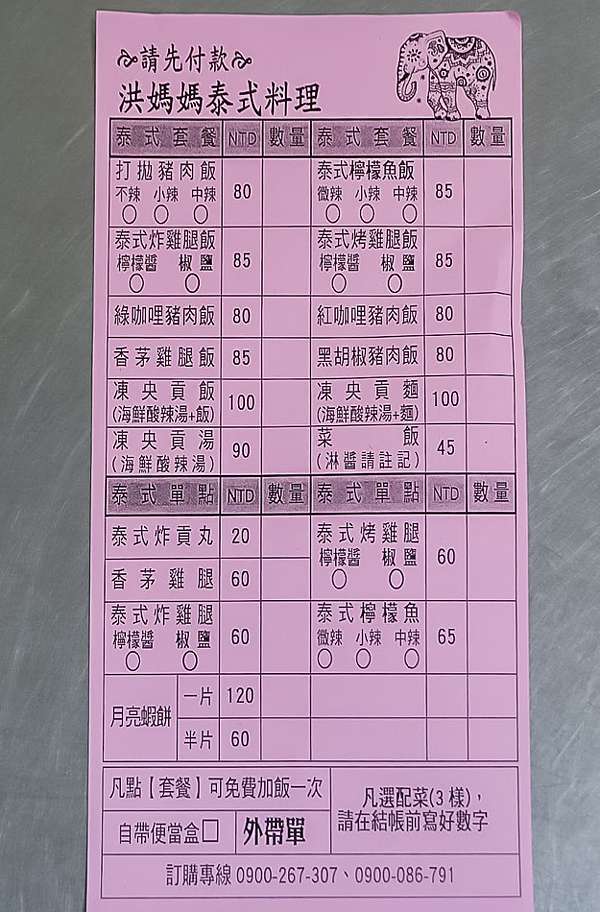 請先付款
洪媽媽泰式料理
泰式套餐 NTD 數量 泰式套餐 NTD 數量
打拋豬肉飯 80 泰式檸檬魚飯 85
不辣 小辣 中辣 微辣 小辣 中辣
泰式炸雞腿飯 85 泰式烤雞腿飯 85
檸檬醬 椒鹽 檸檬醬 椒鹽
綠咖哩豬肉飯 80 紅咖哩豬肉飯 80
香茅雞腿飯 85 黑胡椒豬肉飯 80
凍央貢飯 100 凍央貢麵 100
(海鮮酸辣湯+飯) (海鮮酸辣湯+麵)
凍央貢湯 90 菜飯 45
(海鮮酸辣湯) (淋醬請註記)
泰式單點 NTD 數量 泰式單點 NTD 數量
泰式炸貢丸 20 泰式烤雞腿 60
檸檬醬 椒鹽
香茅雞腿 60
泰式炸雞腿 60 泰式檸檬魚 65
檸檬醬 椒鹽 微辣 小辣 中辣
月亮蝦餅 一片 120
半片 60
凡點【套餐】可免費加飯一次
凡選配菜(3樣)，
請在結帳前寫好數字
自帶便當盒□ 外帶單
訂購專線 0900-267-307、0900-086-791